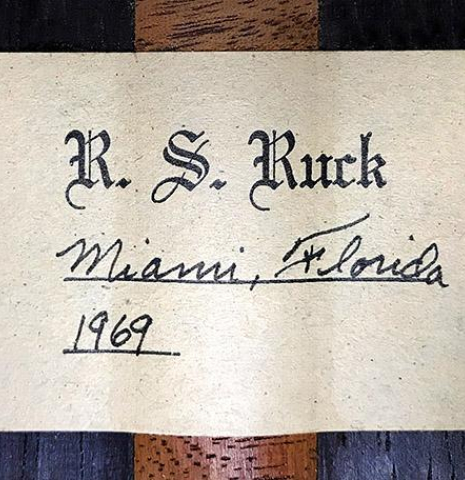 R. S. Ruck
Miami, Florida
1969